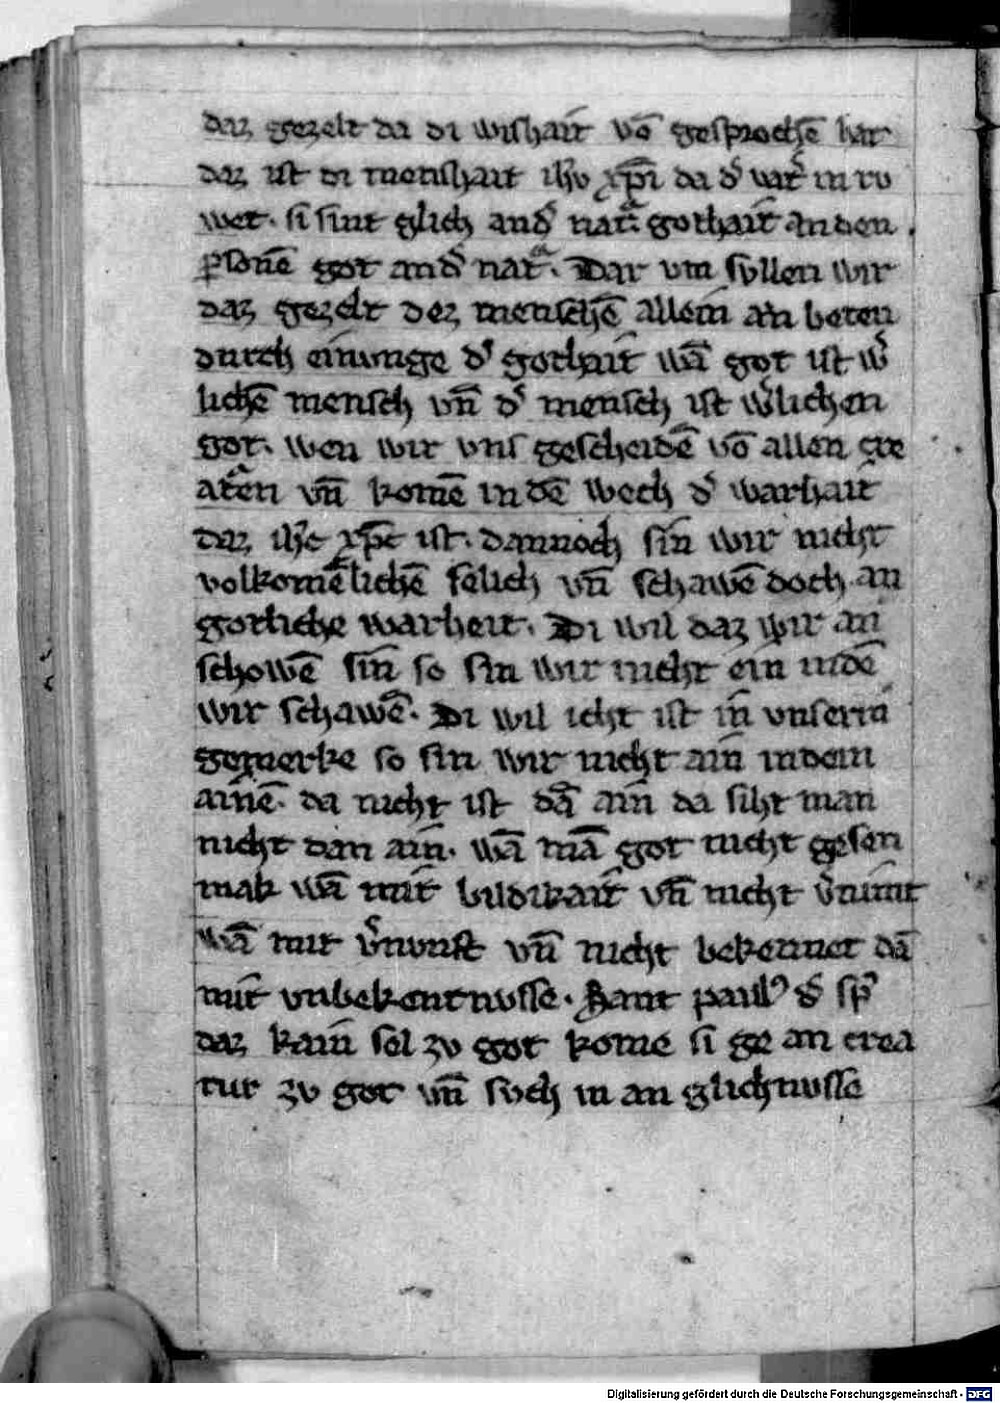 daz gezelt da di wishait vō gesprochē hat
daz ist di menshait ihū xp̄i da d᷑ vat᷑ in rv
wet. si sint glich and᷑ nat᷑. gothait an den
ꝑsonē got and᷑ nat᷑. Dar vm svllen wir
daz gezelt dez menschē allein an beten
durch einunge d᷑ gothait wā got ist w᷑
lichē mensch vn̄ d᷑ mensch ist w᷑lichen
got. wen wir vns gescheidē vō allen cre
atᷣen vn̄ komē in dē wech d᷑ warhait
daz ihc xp̄c ist. dannoch sin wir nicht
volkomēlichē selich vn̄ schawē doch an
gotliche warheit. Di wil daz wir an
schowē sin so sin wir nicht ein in dē
wir schawē. Di wil icht ist in vnserm
gemerke so sin wir nicht ain in dem
ainē. da nicht ist dā ain da siht man
nicht dan ain. wā mā got nicht gesen
mak wā mit blidikait vn̄ nicht v᷑nimt
wā mit v᷑nvnst vn̄ nicht bekennet dā
mit vnbekentnvsse. Sant paulꝰ d᷑ sp᷑
daz kain sel zv got kome si ge an crea
tur zv got vn̄ svch in an glichnvsse
Digitalisierung gefördert durch die Deutsche Forschungsgemeinschaft - DFG